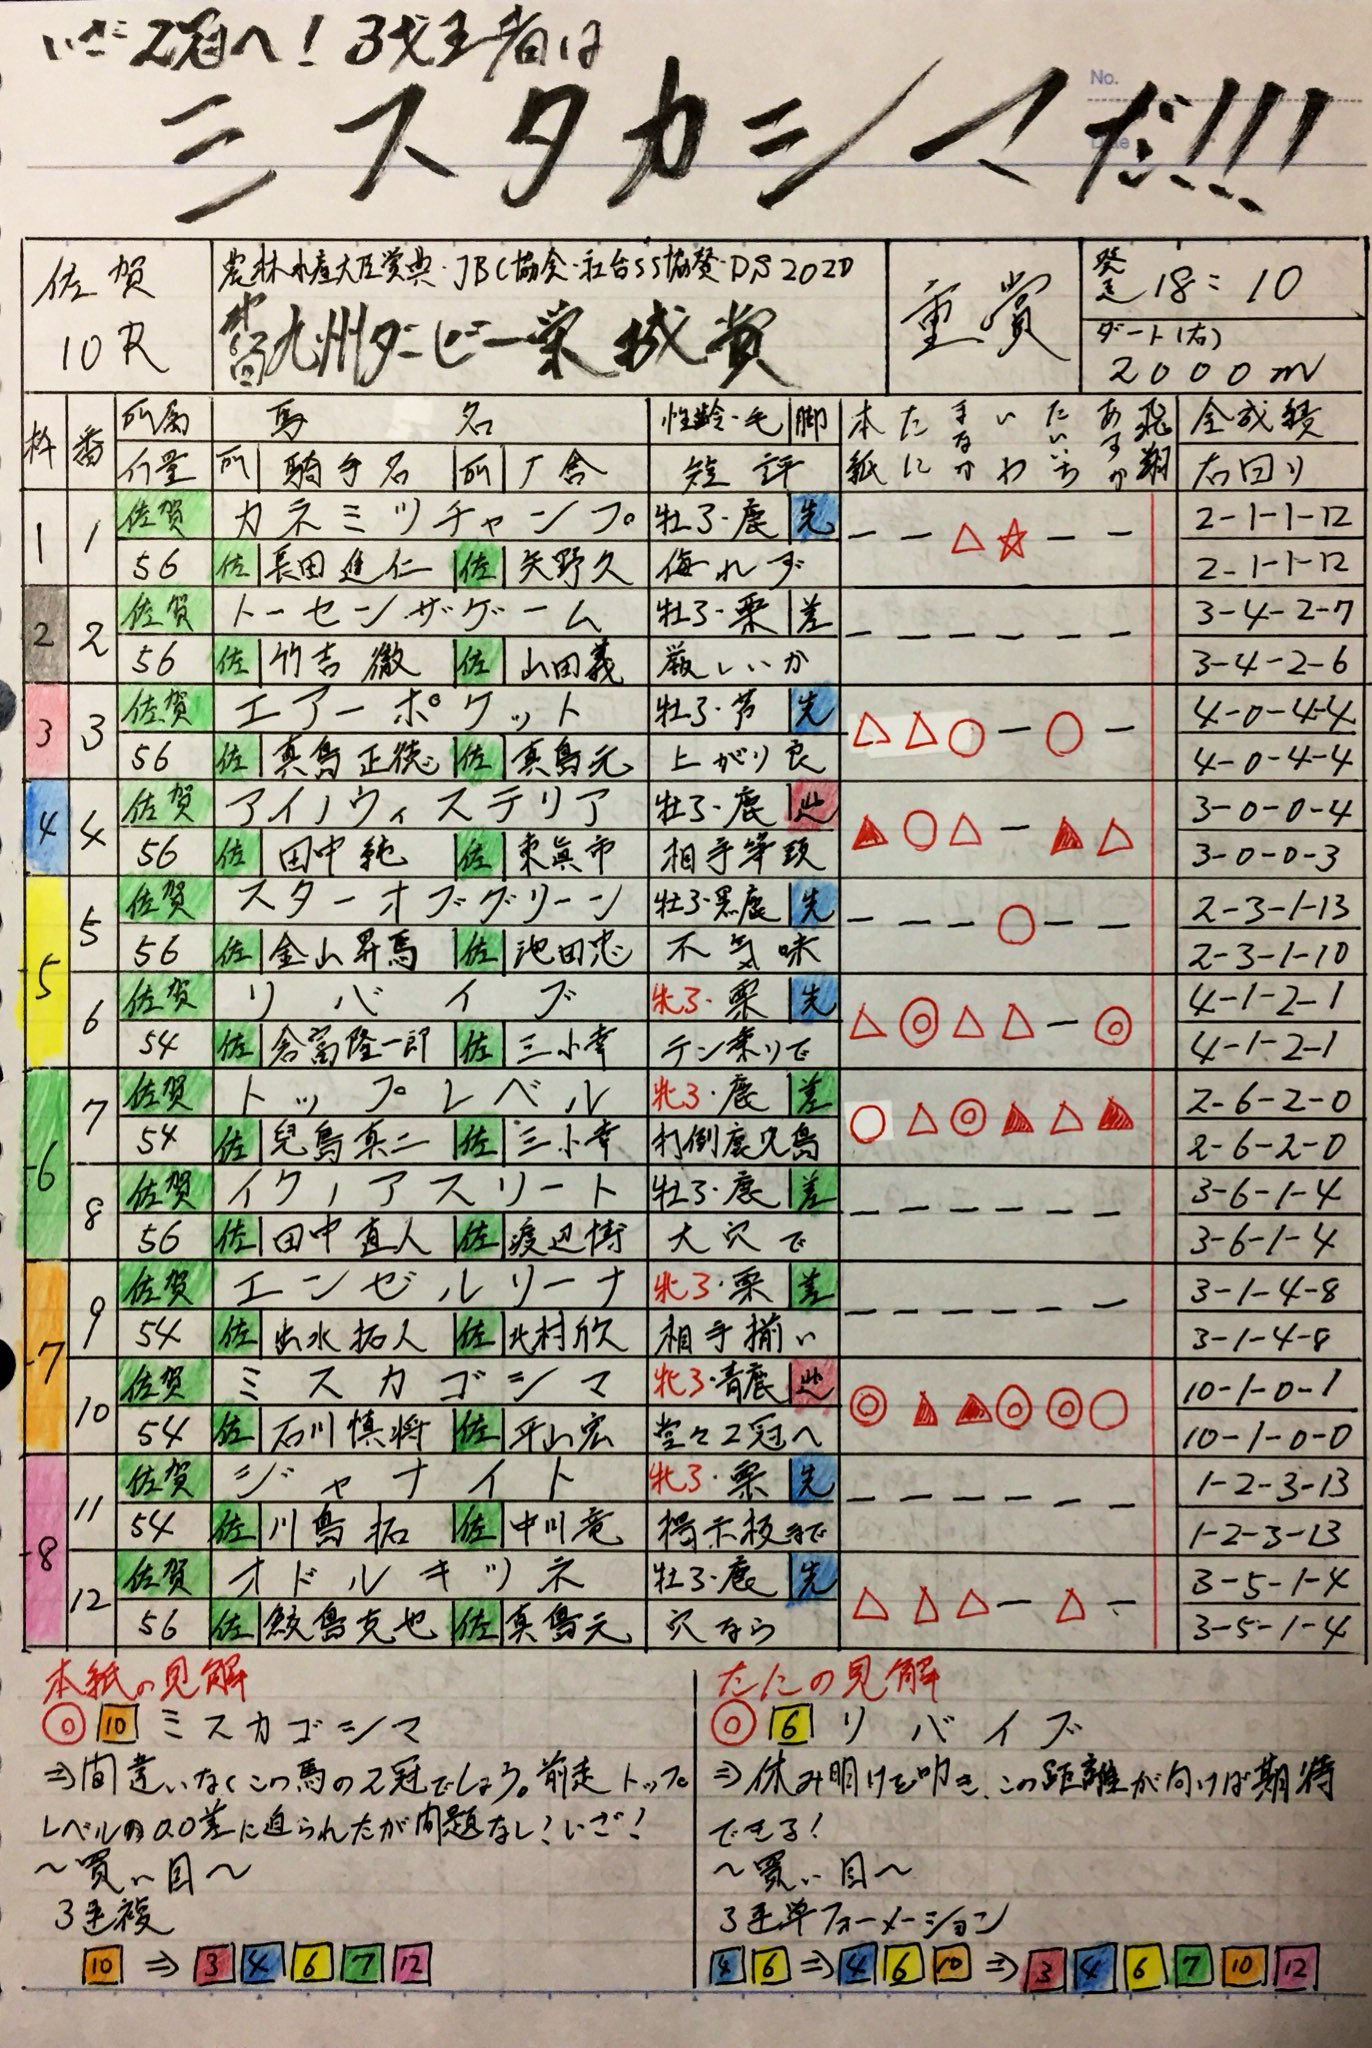 いざ2冠へ!3才王者は
ミスタカシマだ!!!
No.
Date
佐賀
10R
農林水産大臣賞典・JBC協会・社台SS協賛・DS2020
九州ダービー栄城賞
重賞
発走18:10
ダート(右)
2000m
枠 番 所属 馬名 性齢・毛 脚 本紙 たに まなか いわ たいち あすか 飛翔 全成績
斤量 所 騎手名 所 厩舎 短評 右回り
1 1 佐賀 カネミツチャンプ 牡3・鹿 先 - - △ ☆ - - 2-1-1-12
56 佐 長田進仁 佐 矢野久 侮れず 2-1-1-12
2 2 佐賀 トーセンザゲーム 牡3・栗 差 - - - - - - 3-4-2-7
56 佐 竹吉徹 佐 山田義 厳しいか 3-4-2-6
3 3 佐賀 エアーポケット 牡3・芦 先 △ △ ○ - ○ - 4-0-4-4
56 佐 真島正徳 佐 真島元 上がり良 4-0-4-4
4 4 佐賀 アイノウィステリア 牡3・鹿 逃 ▲ ○ △ - ▲ △ 3-0-0-4
56 佐 田中純 佐 東眞市 相手筆頭 3-0-0-3
5 5 佐賀 スターオブグリーン 牡3・黒鹿 先 - - - ○ - - 2-3-1-13
56 佐 金山昇馬 佐 池田忠 不気味 2-3-1-10
6 佐賀 リバイブ 牝3・栗 先 △ ◎ △ △ - ◎ 4-1-2-1
54 佐 倉富隆一郎 佐 三小幸 テン乗りで 4-1-2-1
6 7 佐賀 トップレベル 牝3・鹿 差 ○ △ ◎ ▲ △ ▲ 2-6-2-0
54 佐 兒島真二 佐 三小幸 打倒鹿児島 2-6-2-0
8 佐賀 イクノアスリート 牡3・鹿 差 - - - - - - 3-6-1-4
56 佐 田中直人 佐 渡辺博 大穴で 3-6-1-4
7 9 佐賀 エンゼルリーナ 牝3・栗 差 - - - - - - 3-1-4-8
54 佐 出水拓人 佐 北村欣 相手揃い 3-1-4-8
10 佐賀 ミスカゴシマ 牝3・青鹿 逃 ◎ ▲ ▲ ◎ ◎ ○ 10-1-0-1
54 佐 石川慎将 佐 平山宏 堂々2冠へ 10-1-0-0
8 11 佐賀 ジャナイト 牝3・栗 先 - - - - - - 1-2-3-13
54 佐 川島拓 佐 中川竜 掲示板まで 1-2-3-13
12 佐賀 オドルキツネ 牡3・鹿 先 △ △ △ - △ - 3-5-1-4
56 佐 鮫島克也 佐 真島元 穴なら 3-5-1-4
本紙の見解
◎ 10 ミスカゴシマ
⇒間違いなくこの馬の2冠でしょう。前走トップ
レベルの0.0差に迫られたが問題なし!いざ!
~買い目~
3連複
10 ⇒ 3 4 6 7 12
たにの見解
◎ 6 リバイブ
⇒休み明けを叩き、この距離が向けば期待
できる!
~買い目~
3連単フォーメーション
4 6 ⇒ 4 6 10 ⇒ 3 4 6 7 10 12